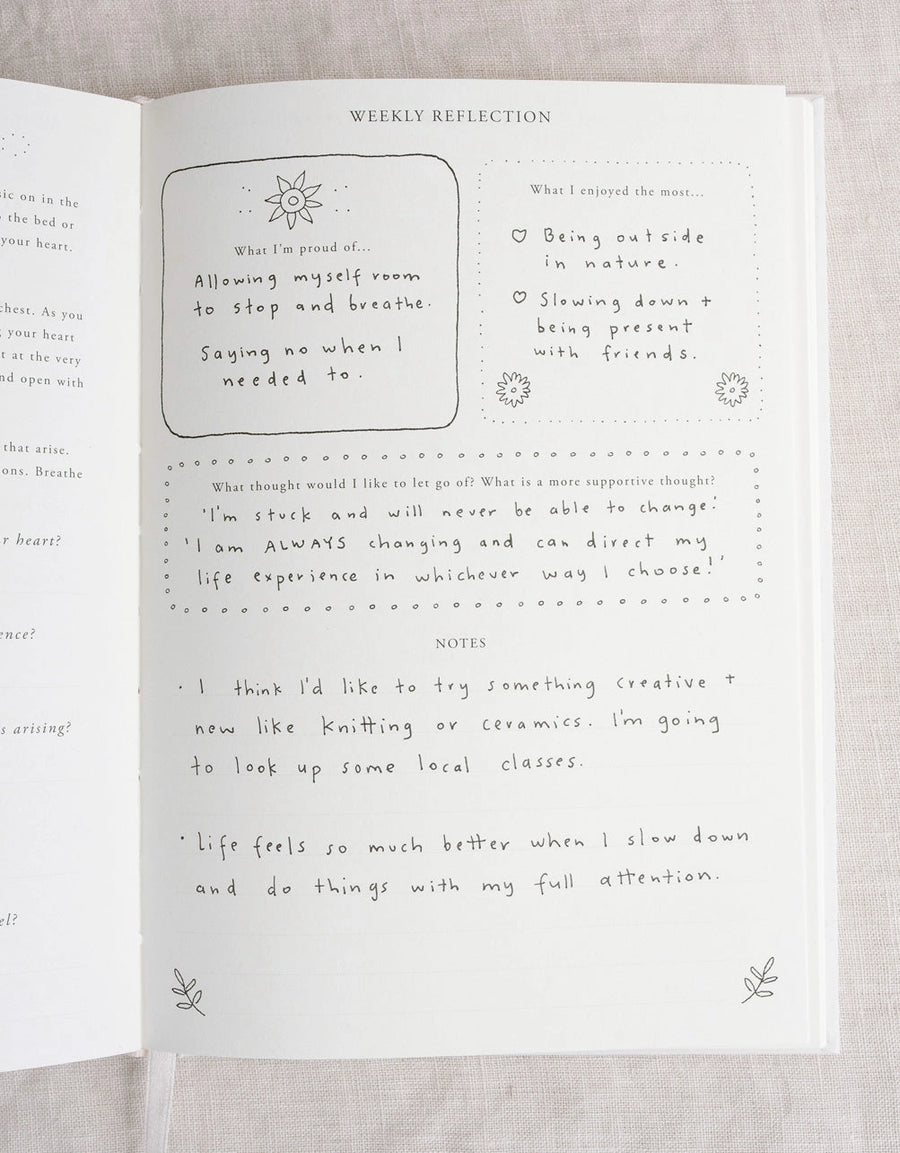 sic on in the
the bed or
your heart.
chest. As you
your heart
t at the very
nd open with
that arise.
ons. Breathe
r heart?
ence?
s arising?
el?
WEEKLY REFLECTION
What I'm proud of...
Allowing myself room
to stop and breathe.
Saying no when I
needed to.
What I enjoyed the most...
Being outside
in nature.
Slowing down +
being present
with friends.
What thought would I like to let go of? What is a more supportive thought?
'I'm stuck and will never be able to change.'
'I am ALWAYS changing and can direct my
life experience in whichever way I choose!'
NOTES
· I think I'd like to try something creative +
new like knitting or ceramics. I'm going
to look up some local classes.
· Life feels so much better when I slow down
and do things with my full attention.